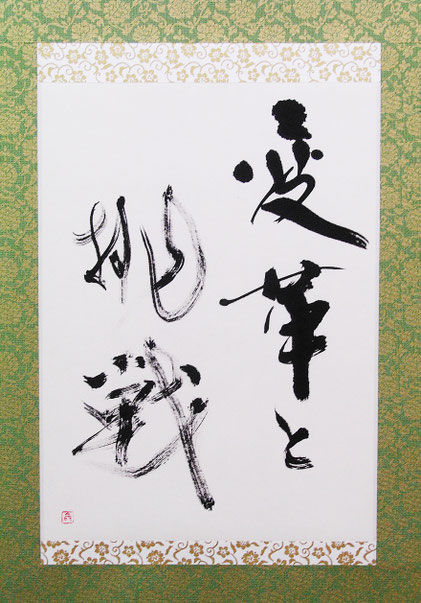 変革と
挑戦